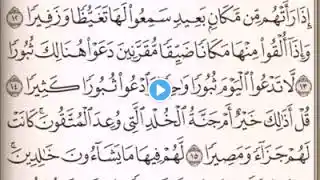 إِذَا رَأَتْهُم مِّن مَّكَانٍ بَعِيدٍ سَمِعُوا۟ لَهَا تَغَيُّظًا وَزَفِيرًا ١٢
وَإِذَآ أُلْقُوا۟ مِنْهَا مَكَانًا ضَيِّقًا مُّقَرَّنِينَ دَعَوْا۟ هُنَالِكَ ثُبُورًا
١٣ لَّا تَدْعُوا۟ ٱلْيَوْمَ ثُبُورًا وَٰحِدًا وَٱدْعُوا۟ ثُبُورًا كَثِيرًا ١٤
قُلْ أَذَٰلِكَ خَيْرٌ أَمْ جَنَّةُ ٱلْخُلْدِ ٱلَّتِى وُعِدَ ٱلْمُتَّقُونَ ۚ كَانَتْ
لَهُمْ جَزَآءً وَمَصِيرًا ١٥ لَّهُمْ فِيهَا مَا يَشَآءُونَ خَٰلِدِينَ ۚ